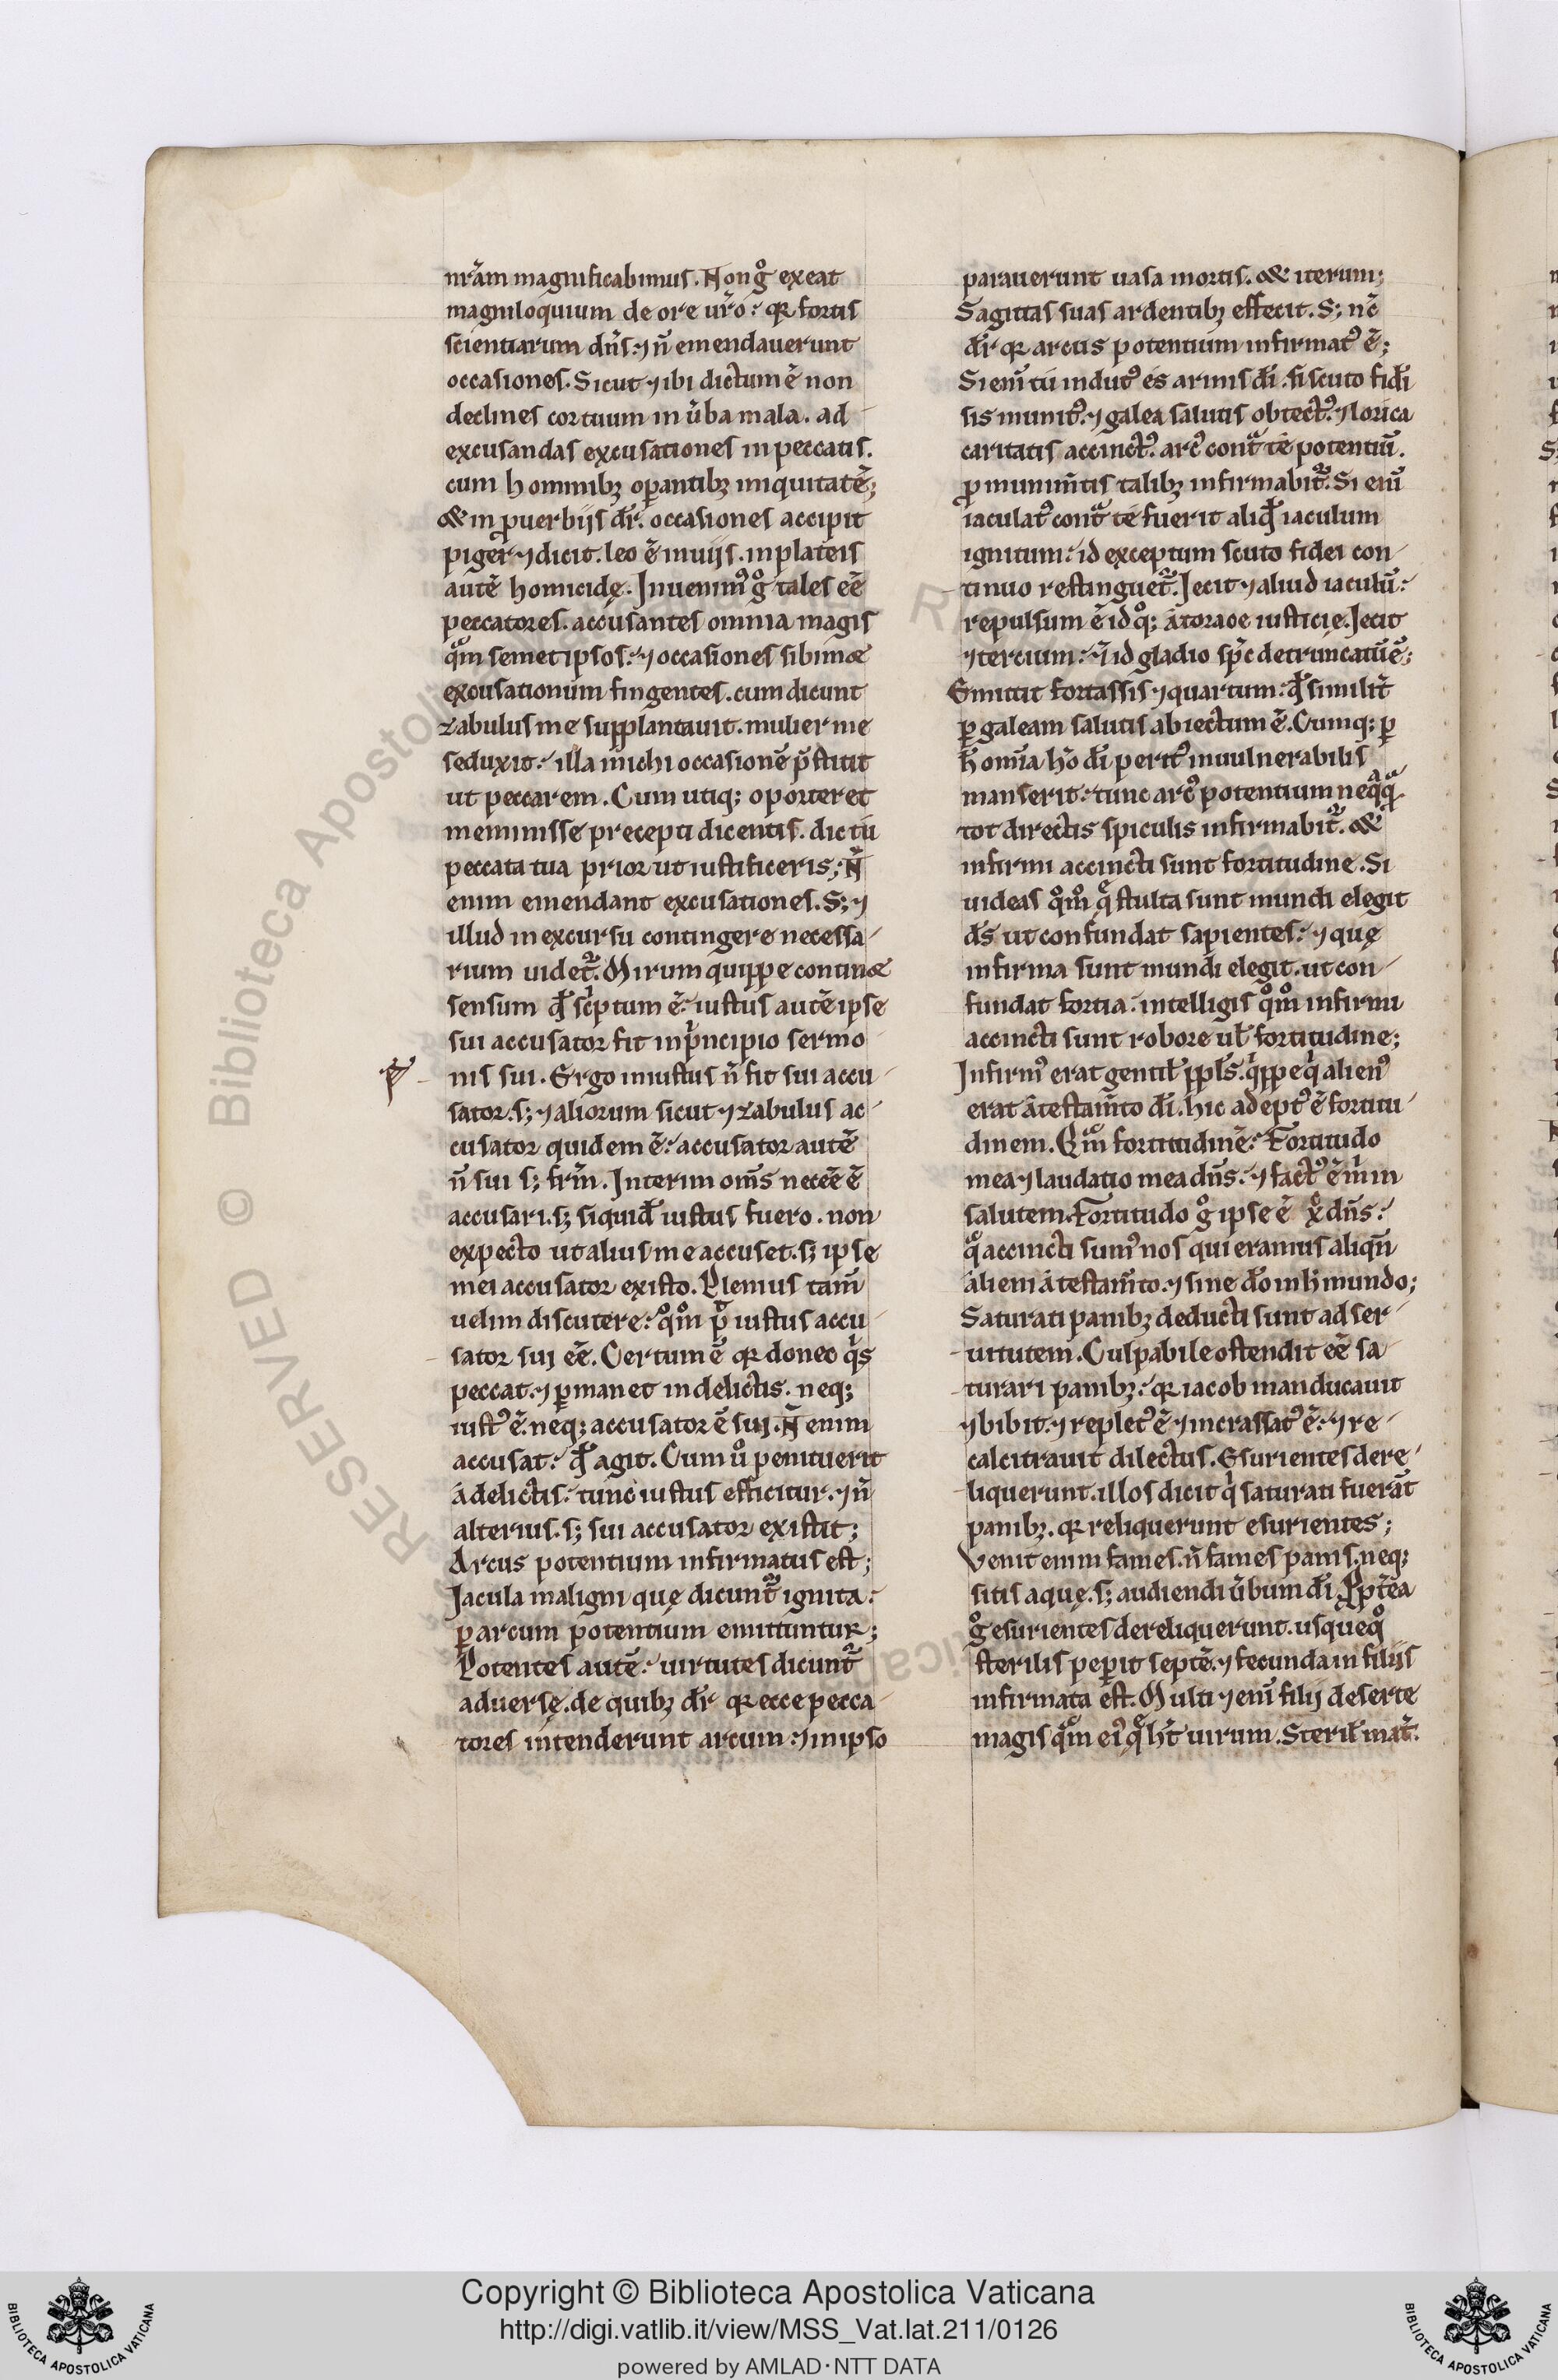 nr̃am magnificabimus. Non gͦ exeat
magniloquium de ore ur̃o. qꝛ fortis
scientiarum dñs. ⁊ ñ emendauerunt
occasiones. Sicut ⁊ ibi dictum ẽ non
declines cor tuum in ũba mala. ad
excusandas excusationes in peccatis.
cum hominibꝫ oꝑantibꝫ iniquitatẽ;
& in ꝓuerbijs dr̃. occasiones accipit
piger ⁊ dicit. leo ẽ in uijs. in plateis
autẽ homicidę. Inuenimꝰ gͦ tales eẽ
peccatores. accusantes omnia magis
qͣm semet ipsos. ⁊ occasiones sibimæ
excusationum fingentes. cum dicunt
zabulus me supplantauit. mulier me
seduxit. illa michi occasionẽ p̃stitit
ut peccarem. Cum utiq; oporteret
meminisse precepti dicentis. dic tu
peccata tua prior ut iustificeris; Ñ
enim emendant excusationes. S; ⁊
illud in excursu contingere necessa
rium uidet᷑. Mirum quippe continæ
sensum qđ sc̃ptum ẽ. iustus autẽ ipse
sui accusator fit in pͥncipio sermo
nis sui. Ergo iniustus ñ fit sui accu
sator. s; ⁊ aliorum sicut ⁊ zabulus ac
cusator quidem ẽ. accusator autẽ
ñ sui s; fr̃m. Interim om̃s neceẽ ẽ
accusari. s; siquidẽ iustus fuero. non
expecto ut alius me accuset. s; ipse
mei accusator existo. Plenius tam̃
uelim discutere. qͦm pͦ iustus accu
sator sui eẽ. Certum ẽ qꝛ donec qͥs
peccat. ⁊ ꝑmanet in delictis. neq;
iustꝰ ẽ. neq; accusator ẽ sui. Ñ enim
accusat. qđ agit. Cum uͦ penituerit
a delictis. tunc iustus efficitur. ⁊ ñ
alterius. s; sui accusator existit;
Arcus potentium infirmatus est;
Iacula maligni quę dicunt᷑ ignita.
ꝑ arcum potentium emittuntur;
Potentes autẽ. uirtutes dicunt᷑
aduersę. de quibꝫ dr̃ qꝛ ecce pecca
tores intenderunt arcum. ⁊ in ipso
parauerunt uasa mortis. & iterum;
Sagittas suas ardentibꝫ effecit. S; nc̃
dr̃ qꝛ arcus potentium infirmatꝰ ẽ;
Si eni̅ tu indutꝰ es armis dĩ. si scuto fidĩ
sis munitꝰ. ⁊ galea salutis obtectꝰ. ⁊ lorica
caritatis accinctꝰ. arcꝰ contͣ te potentiũ.
ꝓ munim̃tis talibꝫ infirmabit᷑. Si enĩ
iaculatꝰ contͣ te fuerit aliqđ iaculum
ignitum. id exceptum scuto fidei con
tinuo restinguet᷑. Iecit ⁊ aliud iaculũ.
repulsum ẽ id qͦ; a torace iusticię. Iecit
⁊ tercium. ⁊ id gladio sp̃c detruncatũ ẽ;
Emittit fortassis ⁊ quartum. qđ similit̃
ꝑ galeam salutis abiectum ẽ. Cumq; ꝑ
h̃ om̃ia hõ dĩ peritꝰ inuulnerabilis
manserit. tunc arcꝰ potentium neqͣqͣ
tot directis spiculis infirmabit᷑. &
infirmi accincti sunt fortitudine. Si
uideas qͦmͦ qͤ stulta sunt mundi elegit
dš ut confundat sapientes. ⁊ quę
infirma sunt mundi elegit. ut con
fundat fortia. intelligis qͦmͦ infirmi
accincti sunt robore ul̃ fortitudine;
Infirmꝰ erat gentil̃ ppl̃s. qͥppe qͥ alienꝰ
erat a testam̃to dĩ. hic adeptꝰ ẽ fortitu
dinem. Qͣm fortitudinẽ. Fortitudo
mea ⁊ laudatio mea dñs. ⁊ factꝰ ẽ mͥ in
salutem. Fortitudo gͦ ipse ẽ xp̃ dñs.
qͦ accincti sumꝰ nos qui eramus aliqñ
alieni a testam̃to. ⁊ sine dõ in h̃ mundo;
Saturati panibꝫ deducti sunt ad ser
uitutem. Culpabile ostendit eẽ sa
turari panibꝫ. qꝛ iacob manducauit
⁊ bibit. ⁊ repletꝰ ẽ ⁊ incrassatꝰ ẽ. ⁊ re
calcitrauit dilectus. Esurientes dere
liquerunt. illos dicit qͥ saturati fuerãt
panibꝫ. qꝛ reliquerunt esurientes;
Venit enim fames. ñ fames panis. neq;
sitis aquę. s; audiendi ũbum dĩ. Ꝓpt̃ea
gͦ esurientes dereliquerunt. usquequͦ
sterilis peꝑit septẽ. ⁊ fecunda in filijs
infirmata est. Multi ⁊ enĩ filij deserte
magis qͣm eiꝰ qͤ ht̃ uirum. Steril̃ mat̃.
RESERVED © Biblioteca Apostolica Vaticana
Copyright © Biblioteca Apostolica Vaticana
http://digi.vatlib.it/view/MSS_Vat.lat.211/0126
powered by AMLAD·NTT DATA
BIBLIOTECA APOSTOLICA VATICANA
BIBLIOTECA APOSTOLICA VATICANA